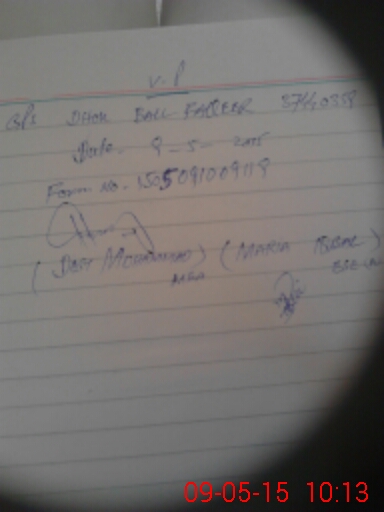 V.P
GPS DHOK BALL FAQEER 37440358
Date. 9-5-2015
Form No. 1505091009119
(Dost Mohammad) (MARIA IQBAL)
09-05-15 10:13